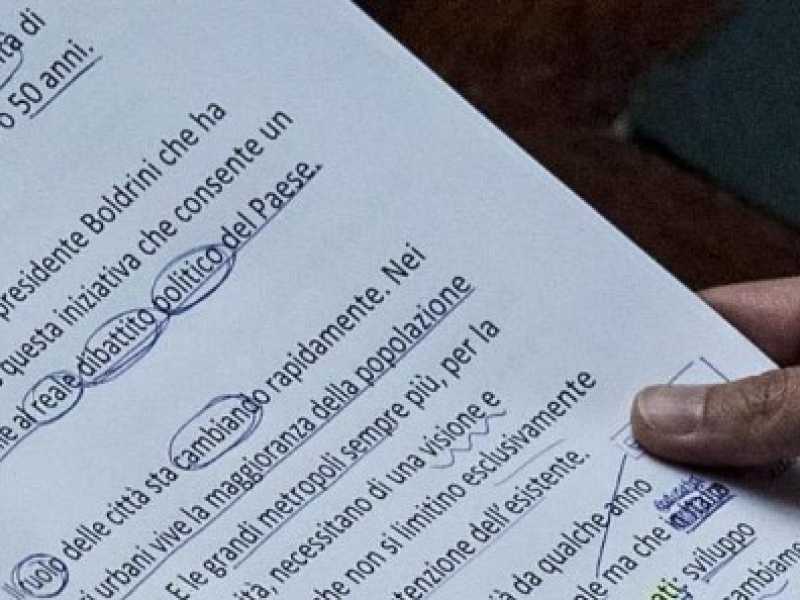 di
50 anni.
presidente Boldrini che ha
questa iniziativa che consente un
al reale dibattito politico del Paese.
Il ruolo delle città sta cambiando rapidamente. Nei
urbani vive la maggioranza della popolazione
E le grandi metropoli sempre più, per la
necessitano di una visione e
che non si limitino esclusivamente
dell'esistente.
da qualche anno
ma che
sviluppo